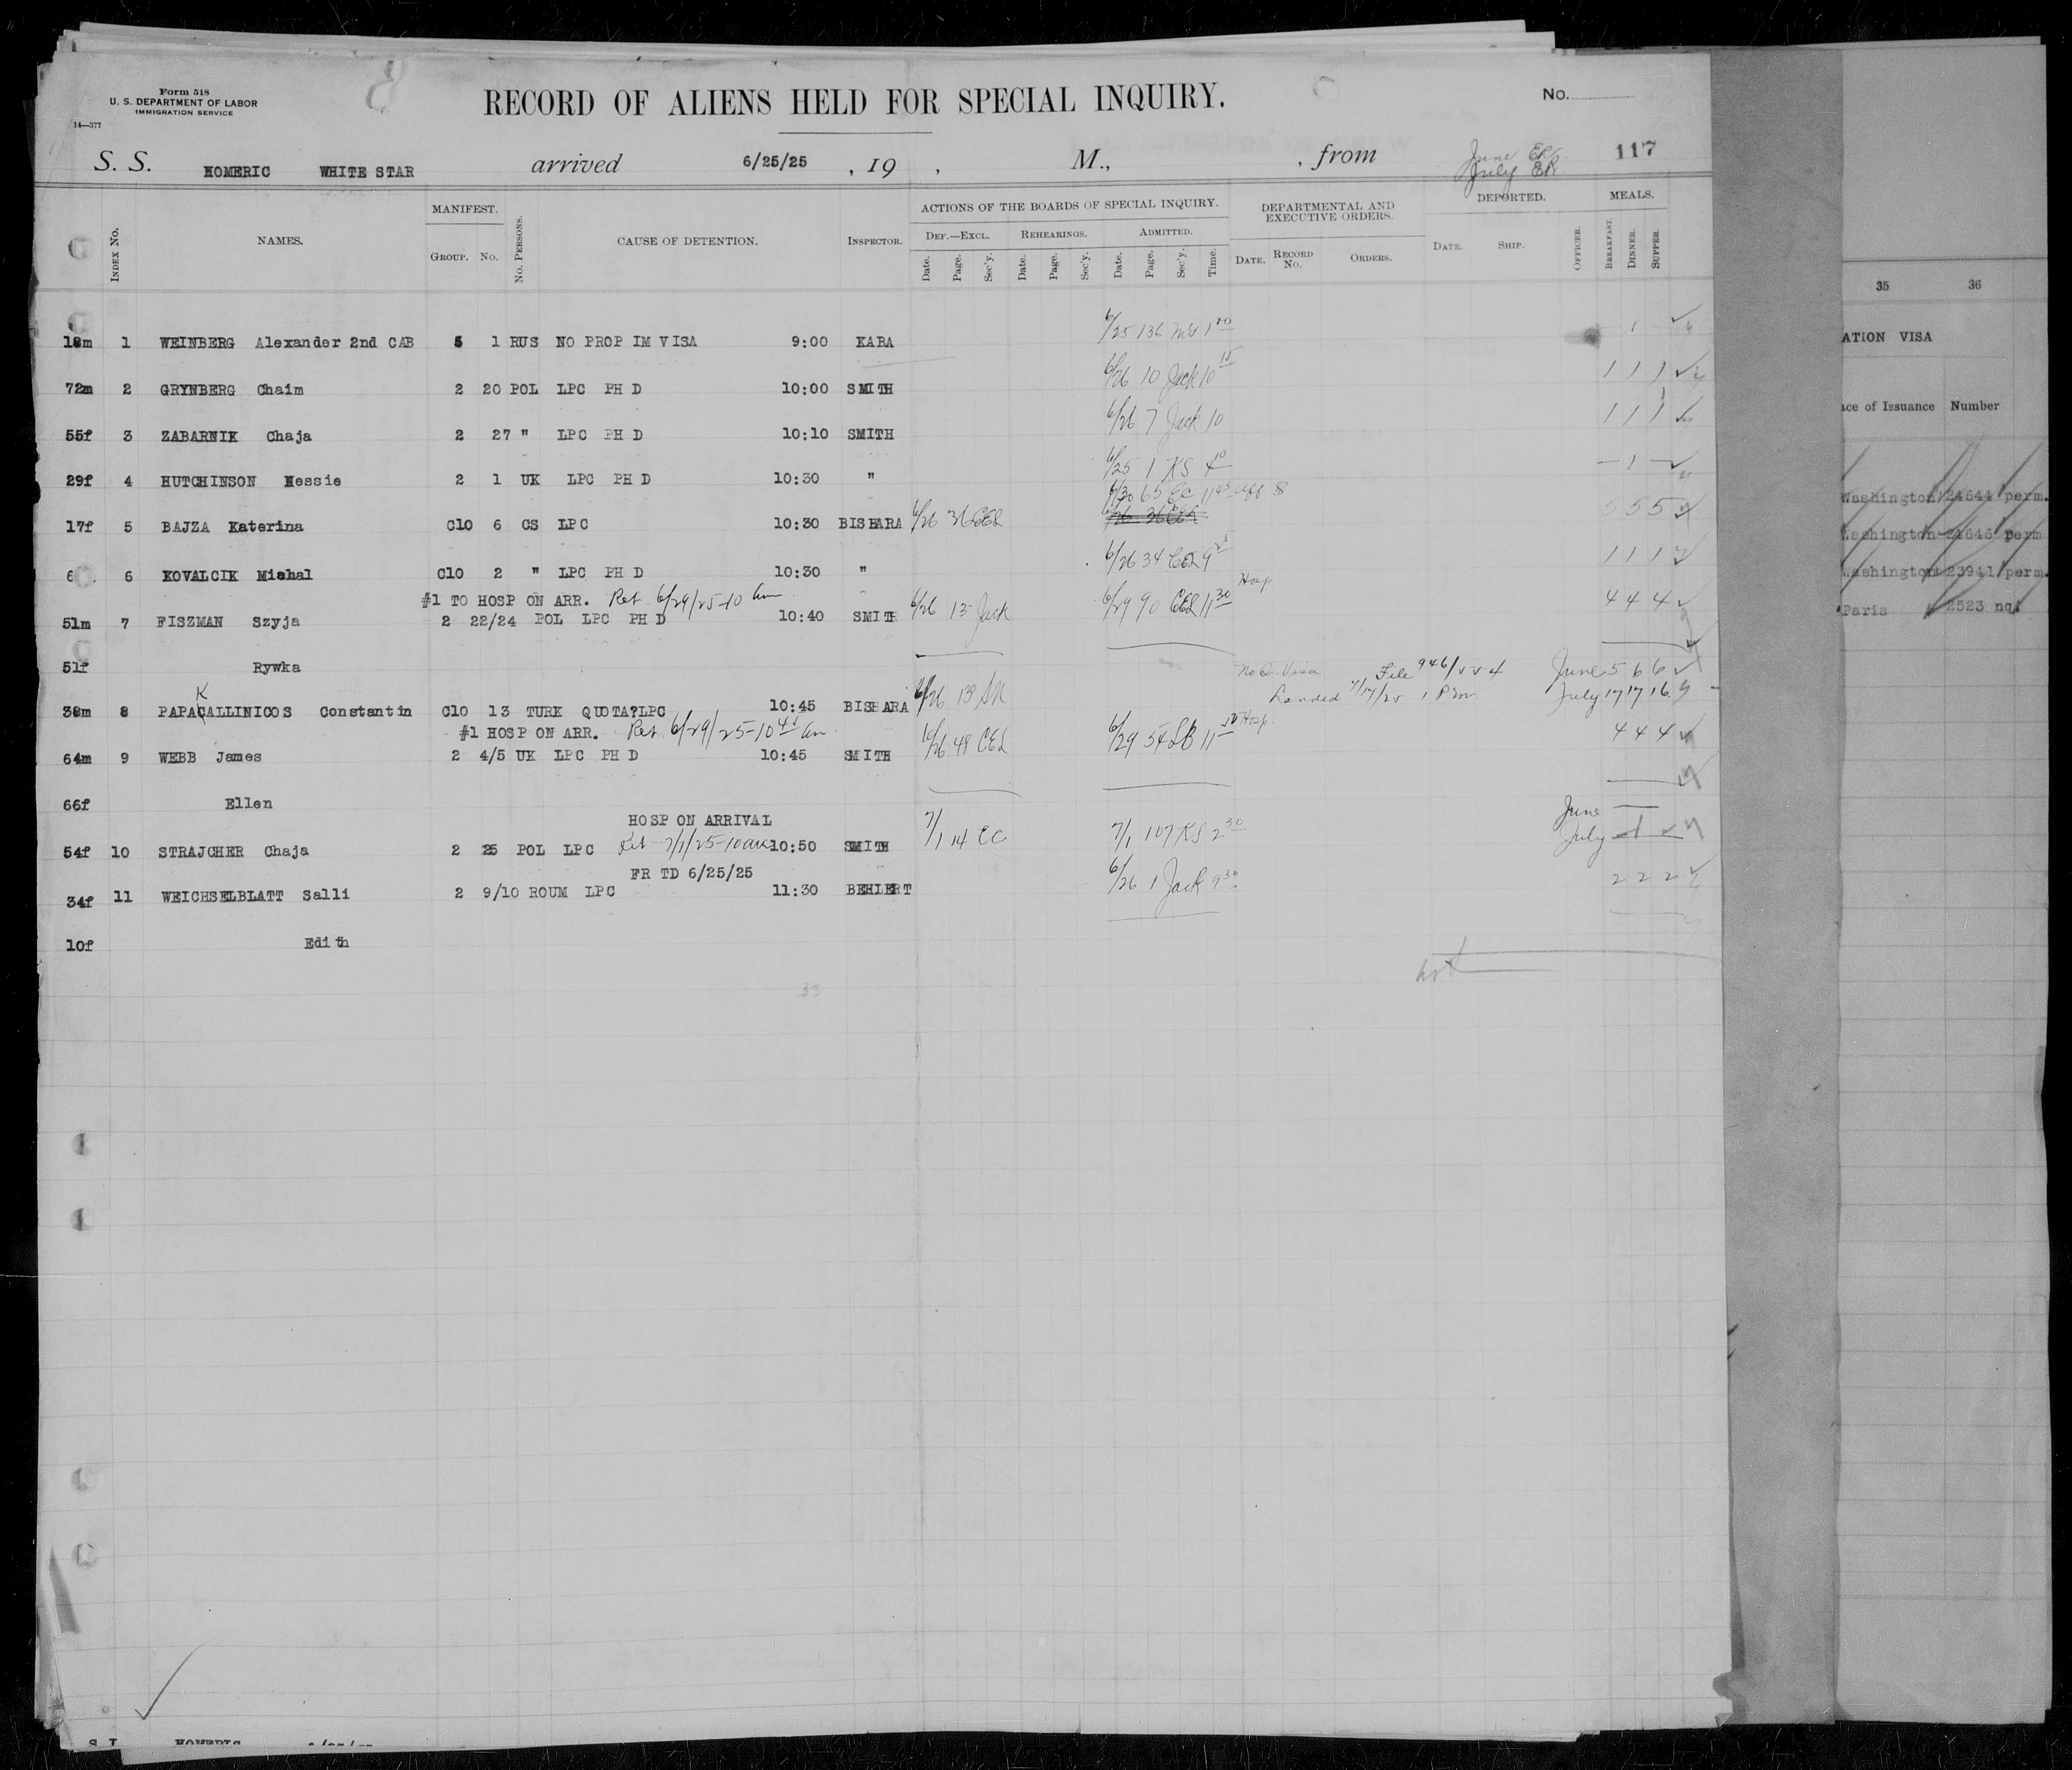 Form 518
U. S. DEPARTMENT OF LABOR
IMMIGRATION SERVICE
14—377
RECORD OF ALIENS HELD FOR SPECIAL INQUIRY.
No.
S. S. HOMERIC WHITE STAR arrived 6/25/25 , 19 , M., , from June ER 117
July ER
INDEX No. NAMES. MANIFEST. GROUP. No. No. PERSONS. CAUSE OF DETENTION. INSPECTOR.
ACTIONS OF THE BOARDS OF SPECIAL INQUIRY.
DEF.—EXCL. Date. Page. Sec'y. REHEARINGS. Date. Page. Sec'y. ADMITTED. Date. Page. Sec'y. Time.
DEPARTMENTAL AND EXECUTIVE ORDERS. DATE. RECORD No. ORDERS.
DEPORTED. DATE. SHIP. OFFICER.
MEALS. BREAKFAST. DINNER. SUPPER.
18m 1 WEINBERG Alexander 2nd CAB 5 1 RUS NO PROP IM VISA 9:00 KABA 6/25 136 1
72m 2 GRYNBERG Chaim 2 20 POL LPC PH D 10:00 SMITH 6/26 10 Jack 10 15 1 1 1
55f 3 ZABARNIK Chaja 2 27 " LPC PH D 10:10 SMITH 6/26 7 Jack 10 1 1 1
29f 4 HUTCHINSON Nessie 2 1 UK LPC PH D 10:30 " 6/25 1 KS 4 10 — 1 —
6/30 65 EC 11 45 aff
17f 5 BAJZA Katerina C10 6 CS LPC 10:30 BISHARA 6/26 36 CEL 6/26 36 CEL 5 5 5
6 KOVALCIK Mishal C10 2 " LPC PH D 10:30 " 6/26 34 CEL 9 25 1 1 1
#1 TO HOSP ON ARR. Ret 6/29/25-10 am Hosp
51m 7 FISZMAN Szyja 2 22/24 POL LPC PH D 10:40 SMITH 6/26 13 Jack 6/29 90 CEL 11 30 4 4 4
51f Rywka
No Visa File 946/ June 5 6 6
K
38m 8 PAPACALLINICOS Constantin C10 13 TURK QUOTA?LPC 10:45 BISHARA 6/26 139 Landed 7/17/25 1 Pm. July 17 17 16
#1 HOSP ON ARR. Ret 6/29/25-10 45 am Hosp.
64m 9 WEBB James 2 4/5 UK LPC PH D 10:45 SMITH 6/26 48 CEL 6/29 54 11 4 4 4
66f Ellen
HOSP ON ARRIVAL June
54f 10 STRAJCHER Chaja 2 25 POL LPC Ret 7/1/25-10am 10:50 SMITH 7/1 14 EC 7/1 107 KS 2 30 July
FR TD 6/25/25
34f 11 WEICHSELBLATT Salli 2 9/10 ROUM LPC 11:30 BEHLERT 6/26 1 Jack 9 30 2 2 2
10f Edith
35 36
ATION VISA
ace of Issuance Number
Washington 24644 perm.
Washington 24646 perm
Washington 23941 perm.
Paris 2523 nq
S I HOMERIC